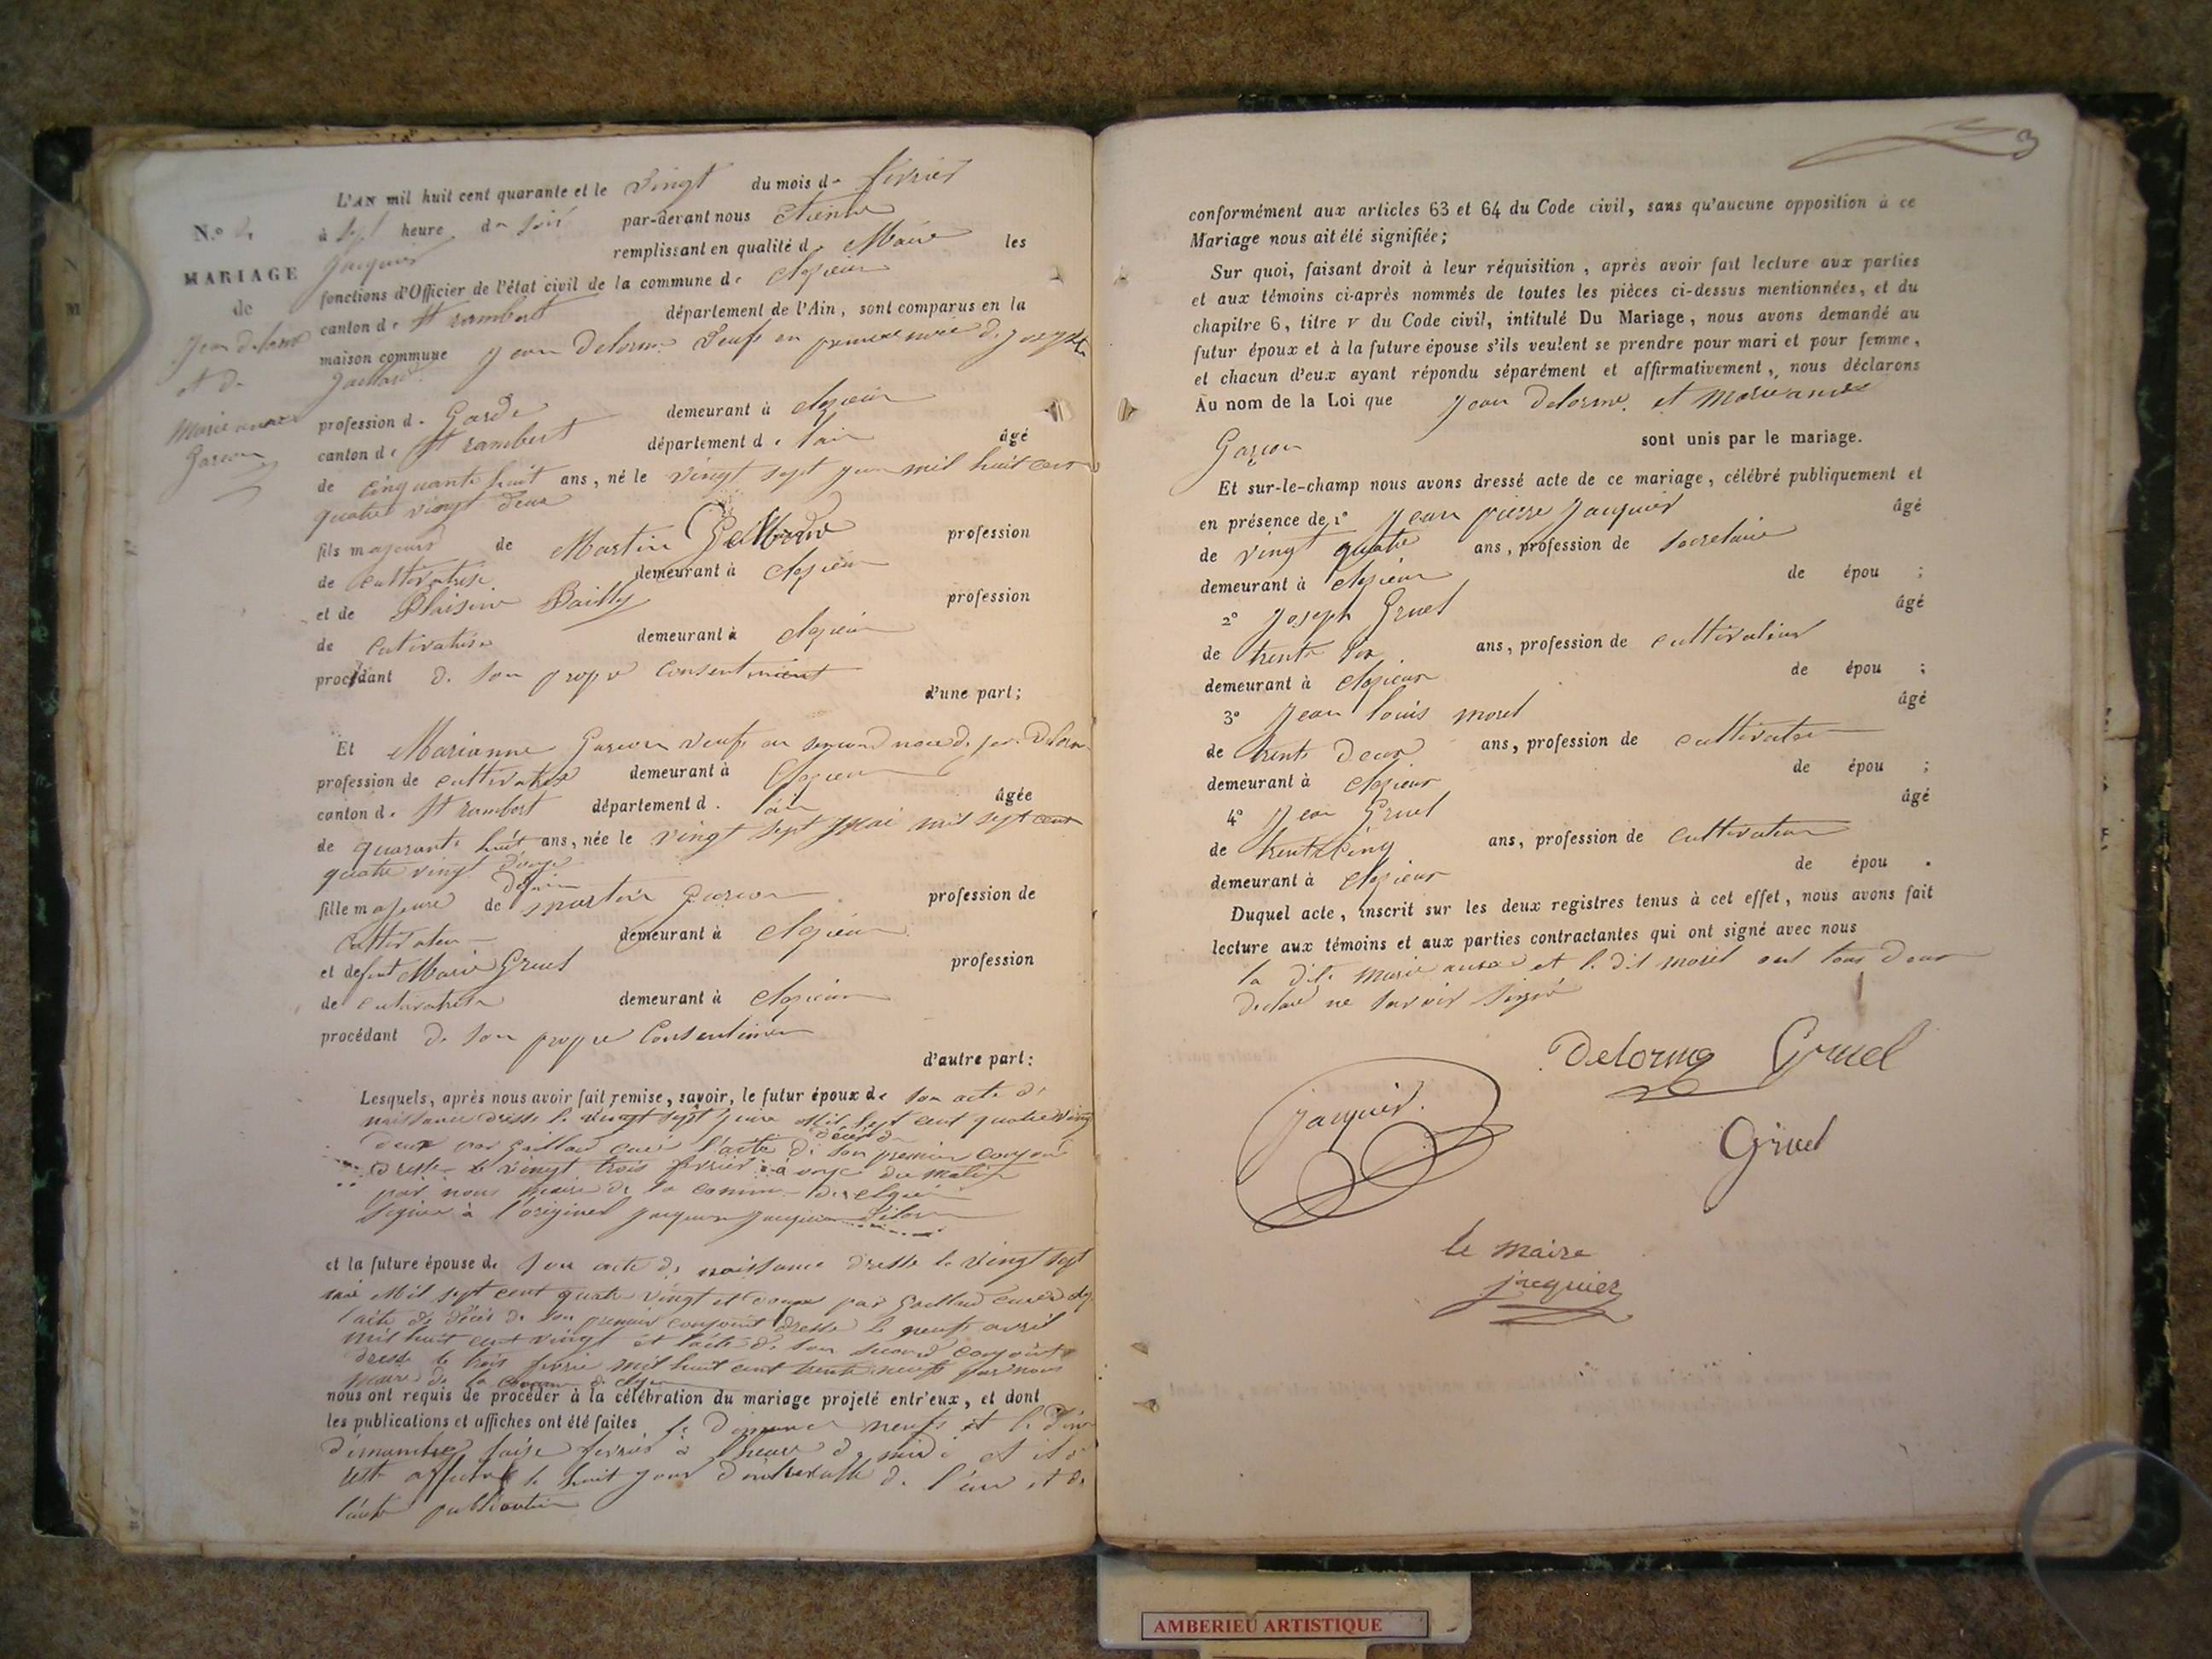 L'AN mil huit cent quarante et le vingt du mois de février
N.º
à sept heure du soir par-devant nous Etienne
Jacquier remplissant en qualité de Maire les
MARIAGE
fonctions d'Officier de l'état civil de la commune de
de
canton de St rambert département de l'Ain, sont comparus en la
Jean delorme
maison commune Jean Delorme Veuf en premiere noce de Josephte
et de
Gaillard
Marie anne
profession de Garde demeurant à
Garcon
canton de St rambert département de l'ain âgé
de cinquante huit ans, né le vingt sept juin mil huit cent
quatre vingt deux
fils majeur de Martin profession
de cultivatrise demeurant à
et de Blaisine Bailly profession
de cutivatrise demeurant à
procédant de son propre consentement
d'une part;
Et Marianne Garcon veuf en second noce de Delorme
profession de cultivatrise demeurant à
canton de St rambert département de l'ain âgée
de quarante huit ans, née le vingt sept Mai mil sept cent
quatre vingt douze
fille majeure de defunt Martin Garcon profession de
cultivateur demeurant à
et de funt Marie Gruel profession
de cutivatrise demeurant à
procédant de son propre Consentement
d'autre part:
Lesquels, après nous avoir fait remise, savoir, le futur époux de son acte de
naissance dresse le vingt sept juin Mil sept cent quatre vingt
deux par Gaillard curé l'acte de décès de son premier conjoint
dresse le vingt trois fevrier à onze du matin
par nous maire de la commune
signé à l'original Jacquier Jacquier
et la future épouse de son acte de naissance dresse le vingt sept
mai Mil sept cent quatre vingt et douze par Gaillard curé
l'acte de décès de son premier conjoint dresse le neuf avril
mil huit cent vingt et l'acte de son second conjoint
dresse le trois fevrie mil huit cent trente neuf par nous
maire de la commune
nous ont requis de procéder à la célébration du mariage projeté entr'eux, et dont
les publications et affiches ont été faites le dimanche neuf et le
dimanche saise fevrier à l'heure de midi et
affiche le huit jour d'intervalle de l'une et de
l'autre publication
3
conformément aux articles 63 et 64 du Code civil, sans qu'aucune opposition à ce
Mariage nous ait été signifiée;
Sur quoi, faisant droit à leur réquisition, après avoir fait lecture aux parties
et aux témoins ci-après nommés de toutes les pièces ci-dessus mentionnées, et du
chapitre 6, titre v du Code civil, intitulé Du Mariage, nous avons demandé au
futur époux et à la future épouse s'ils veulent se prendre pour mari et pour femme,
et chacun d'eux ayant répondu séparément et affirmativement, nous déclarons
Au nom de la Loi que Jean Delorme et Marie anne
Garçon sont unis par le mariage.
Et sur-le-champ nous avons dressé acte de ce mariage, célébré publiquement et
en présence de 1º Jean pierre Jacquier âgé
de vingt quatre ans, profession de secretaire
demeurant à de épou ;
2º Joseph Gruel âgé
de trente six ans, profession de cultivateur
demeurant à de épou ;
3º Jean louis morel âgé
de trente deux ans, profession de cultivateur
demeurant à de épou ;
4º Jean Gruel âgé
de trente cinq ans, profession de cultivateur
demeurant à de épou .
Duquel acte, inscrit sur les deux registres tenus à cet effet, nous avons fait
lecture aux témoins et aux parties contractantes qui ont signé avec nous
la dite Marie anne et le dit morel ont tous deux
declaré ne savoir signé
Delorme Gruel
jacquier
Gruel
le maire
jacquier
AMBERIEU ARTISTIQUE